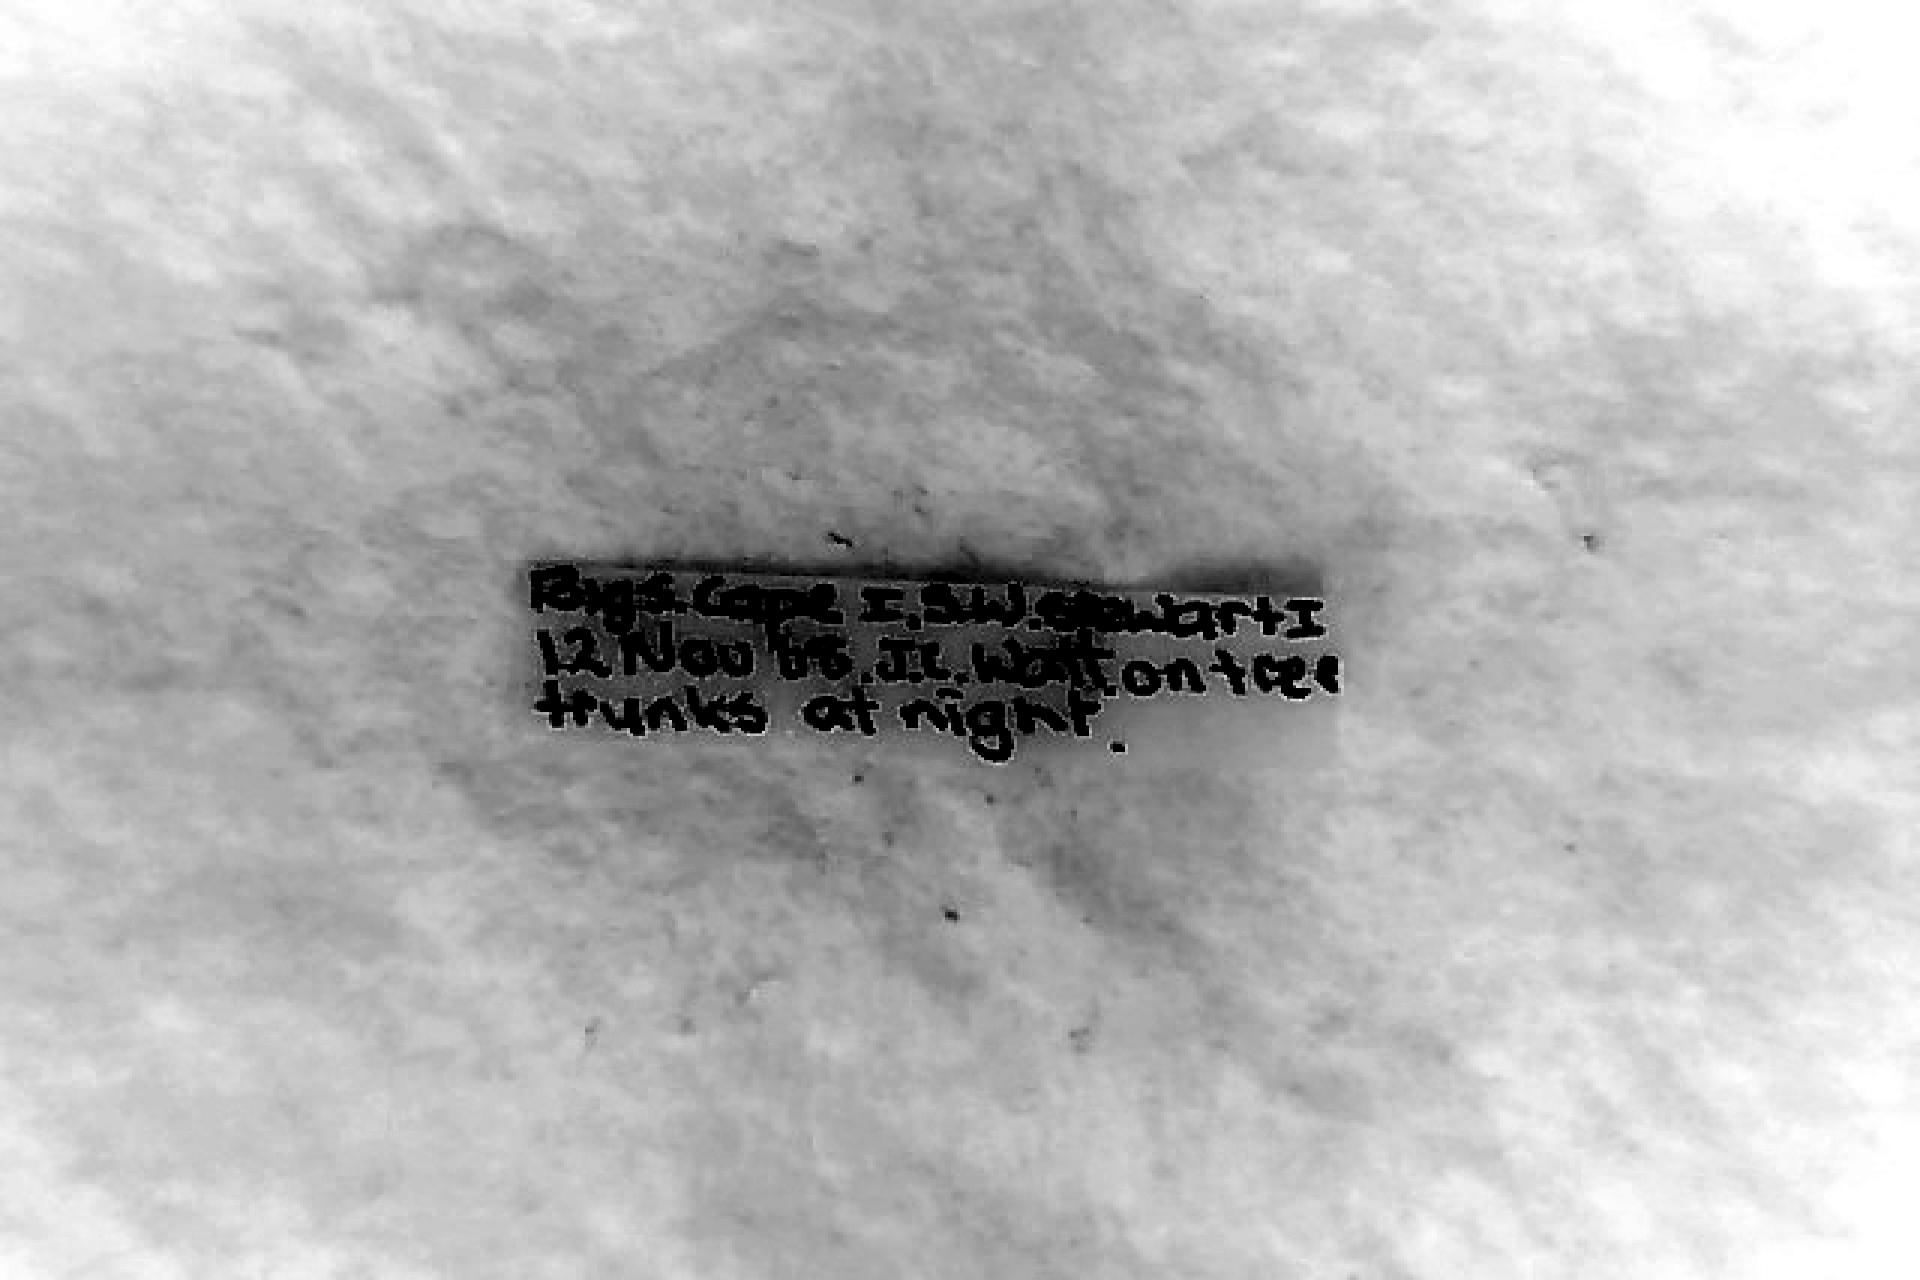 Bigs. Cape I. S.W. Stewart I
12 Nov 68. J.C. Watt. on tree
trunks at night.